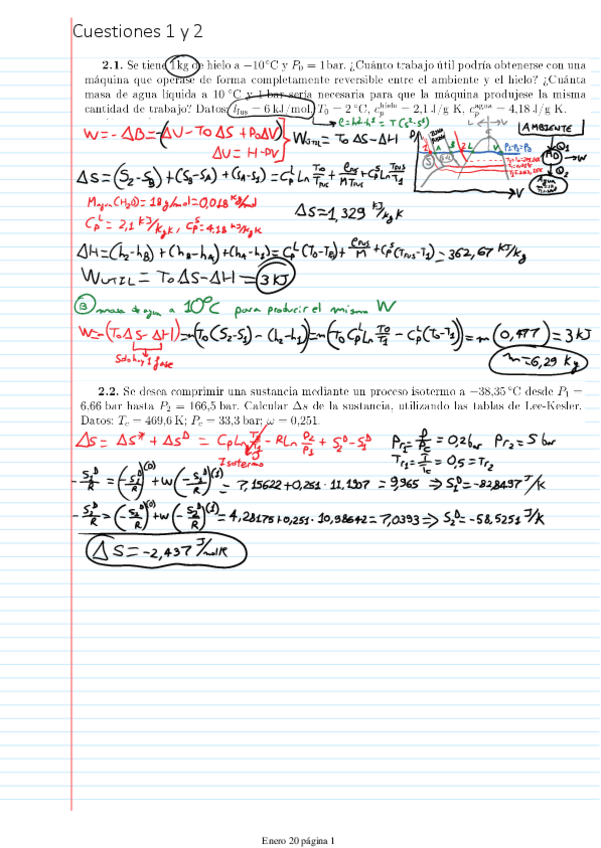 Cuestiones 1 y 2
2.1. Se tiene 1 kg de hielo a −10 °C y P₀ = 1 bar. ¿Cuánto trabajo útil podría obtenerse con una
máquina que operase de forma completamente reversible entre el ambiente y el hielo? ¿Cuánta
masa de agua líquida a 10 °C y 1 bar sería necesaria para que la máquina produjese la misma
cantidad de trabajo? Datos: l_fus = 6 kJ/mol, T₀ = 2 °C, c_p^hielo = 2,1 J/g K, c_p^agua = 4,18 J/g K.
AMBIENTE
W = -ΔB = -(ΔU - T₀ΔS + P₀ΔV)
ΔU = H - PV
W_UTIL = T₀ ΔS - ΔH
ΔS = (S₂-S_B) + (S_B-S_A) + (S_A-S₁) = C_p^L Ln T₀/T_FUS + l_FUS/M T_FUS + C_p^S Ln T_FUS/T₁
M_agua(H₂O) = 18 g/mol = 0,018 kg/mol
C_p^L = 2,1 kJ/kg K, C_p^S = 4.18 kJ/kg K
ΔS = 1,329 kJ/kg K
ΔH = (h₂-h_B) + (h_B-h_A) + (h_A-h₁) = C_p^L (T₀-T_B) + l_FUS/M + C_p^S (T_FUS-T₁) = 362,67 kJ/kg
W_UTIL = T₀ ΔS - ΔH = 3 KJ
B masa de agua a 10°C para producir el mismo W
W = -(T₀ ΔS - ΔH) = m(T₀(S₂-S₁) - (h₂-h₁)) = m(T₀ C_p^L Ln T₀/T₁ - C_p^L (T₀-T₁)) = m (0,477) = 3 kJ
Solo hay 1 fase
m = 6,29 Kg
2.2. Se desea comprimir una sustancia mediante un proceso isotermo a −38,35 °C desde P₁ =
6.66 bar hasta P₂ = 166,5 bar. Calcular Δs de la sustancia, utilizando las tablas de Lee-Kesler.
Datos: T_c = 469,6 K; P_c = 33,3 bar; ω = 0,251.
ΔS = ΔS* + ΔS^D = C_p Ln T₂/T₁ - R Ln P₂/P₁ + S₂^D - S₁^D
Isotermo
P_r1 = P/P_c = 0,2 bar P_r2 = 5 bar
T_r1 = T/T_c = 0,5 = T_r2
-S₁^D/R = (-S₁^D/R)^(0) + w(-S₁^D/R)^(1) = 7,15622 + 0,251 · 11,1907 = 9,965 ⇒ S₁^D = -82,8497 J/K
-S₂^D/R = (-S₂^D/R)^(0) + w(-S₂^D/R)^(1) = 4,28175 + 0,251 · 10,98642 = 7,0393 ⇒ S₂^D = -58,5251 J/K
ΔS = -2,437 J/mol K
Enero 20 página 1